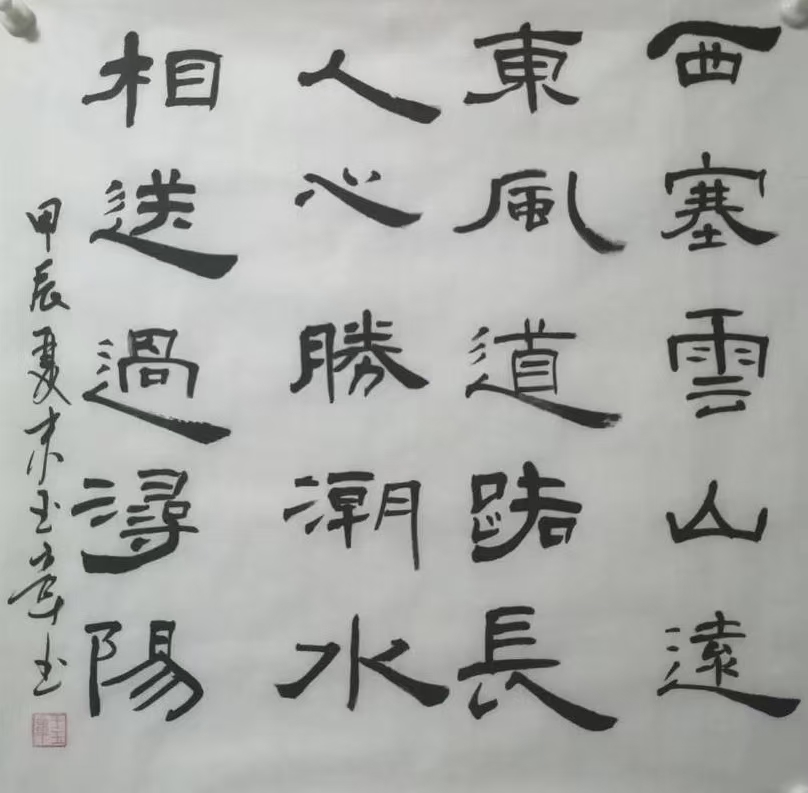 西塞雲山遠
東風道路長
人心勝潮水
相送過潯陽
甲辰夏末玉书